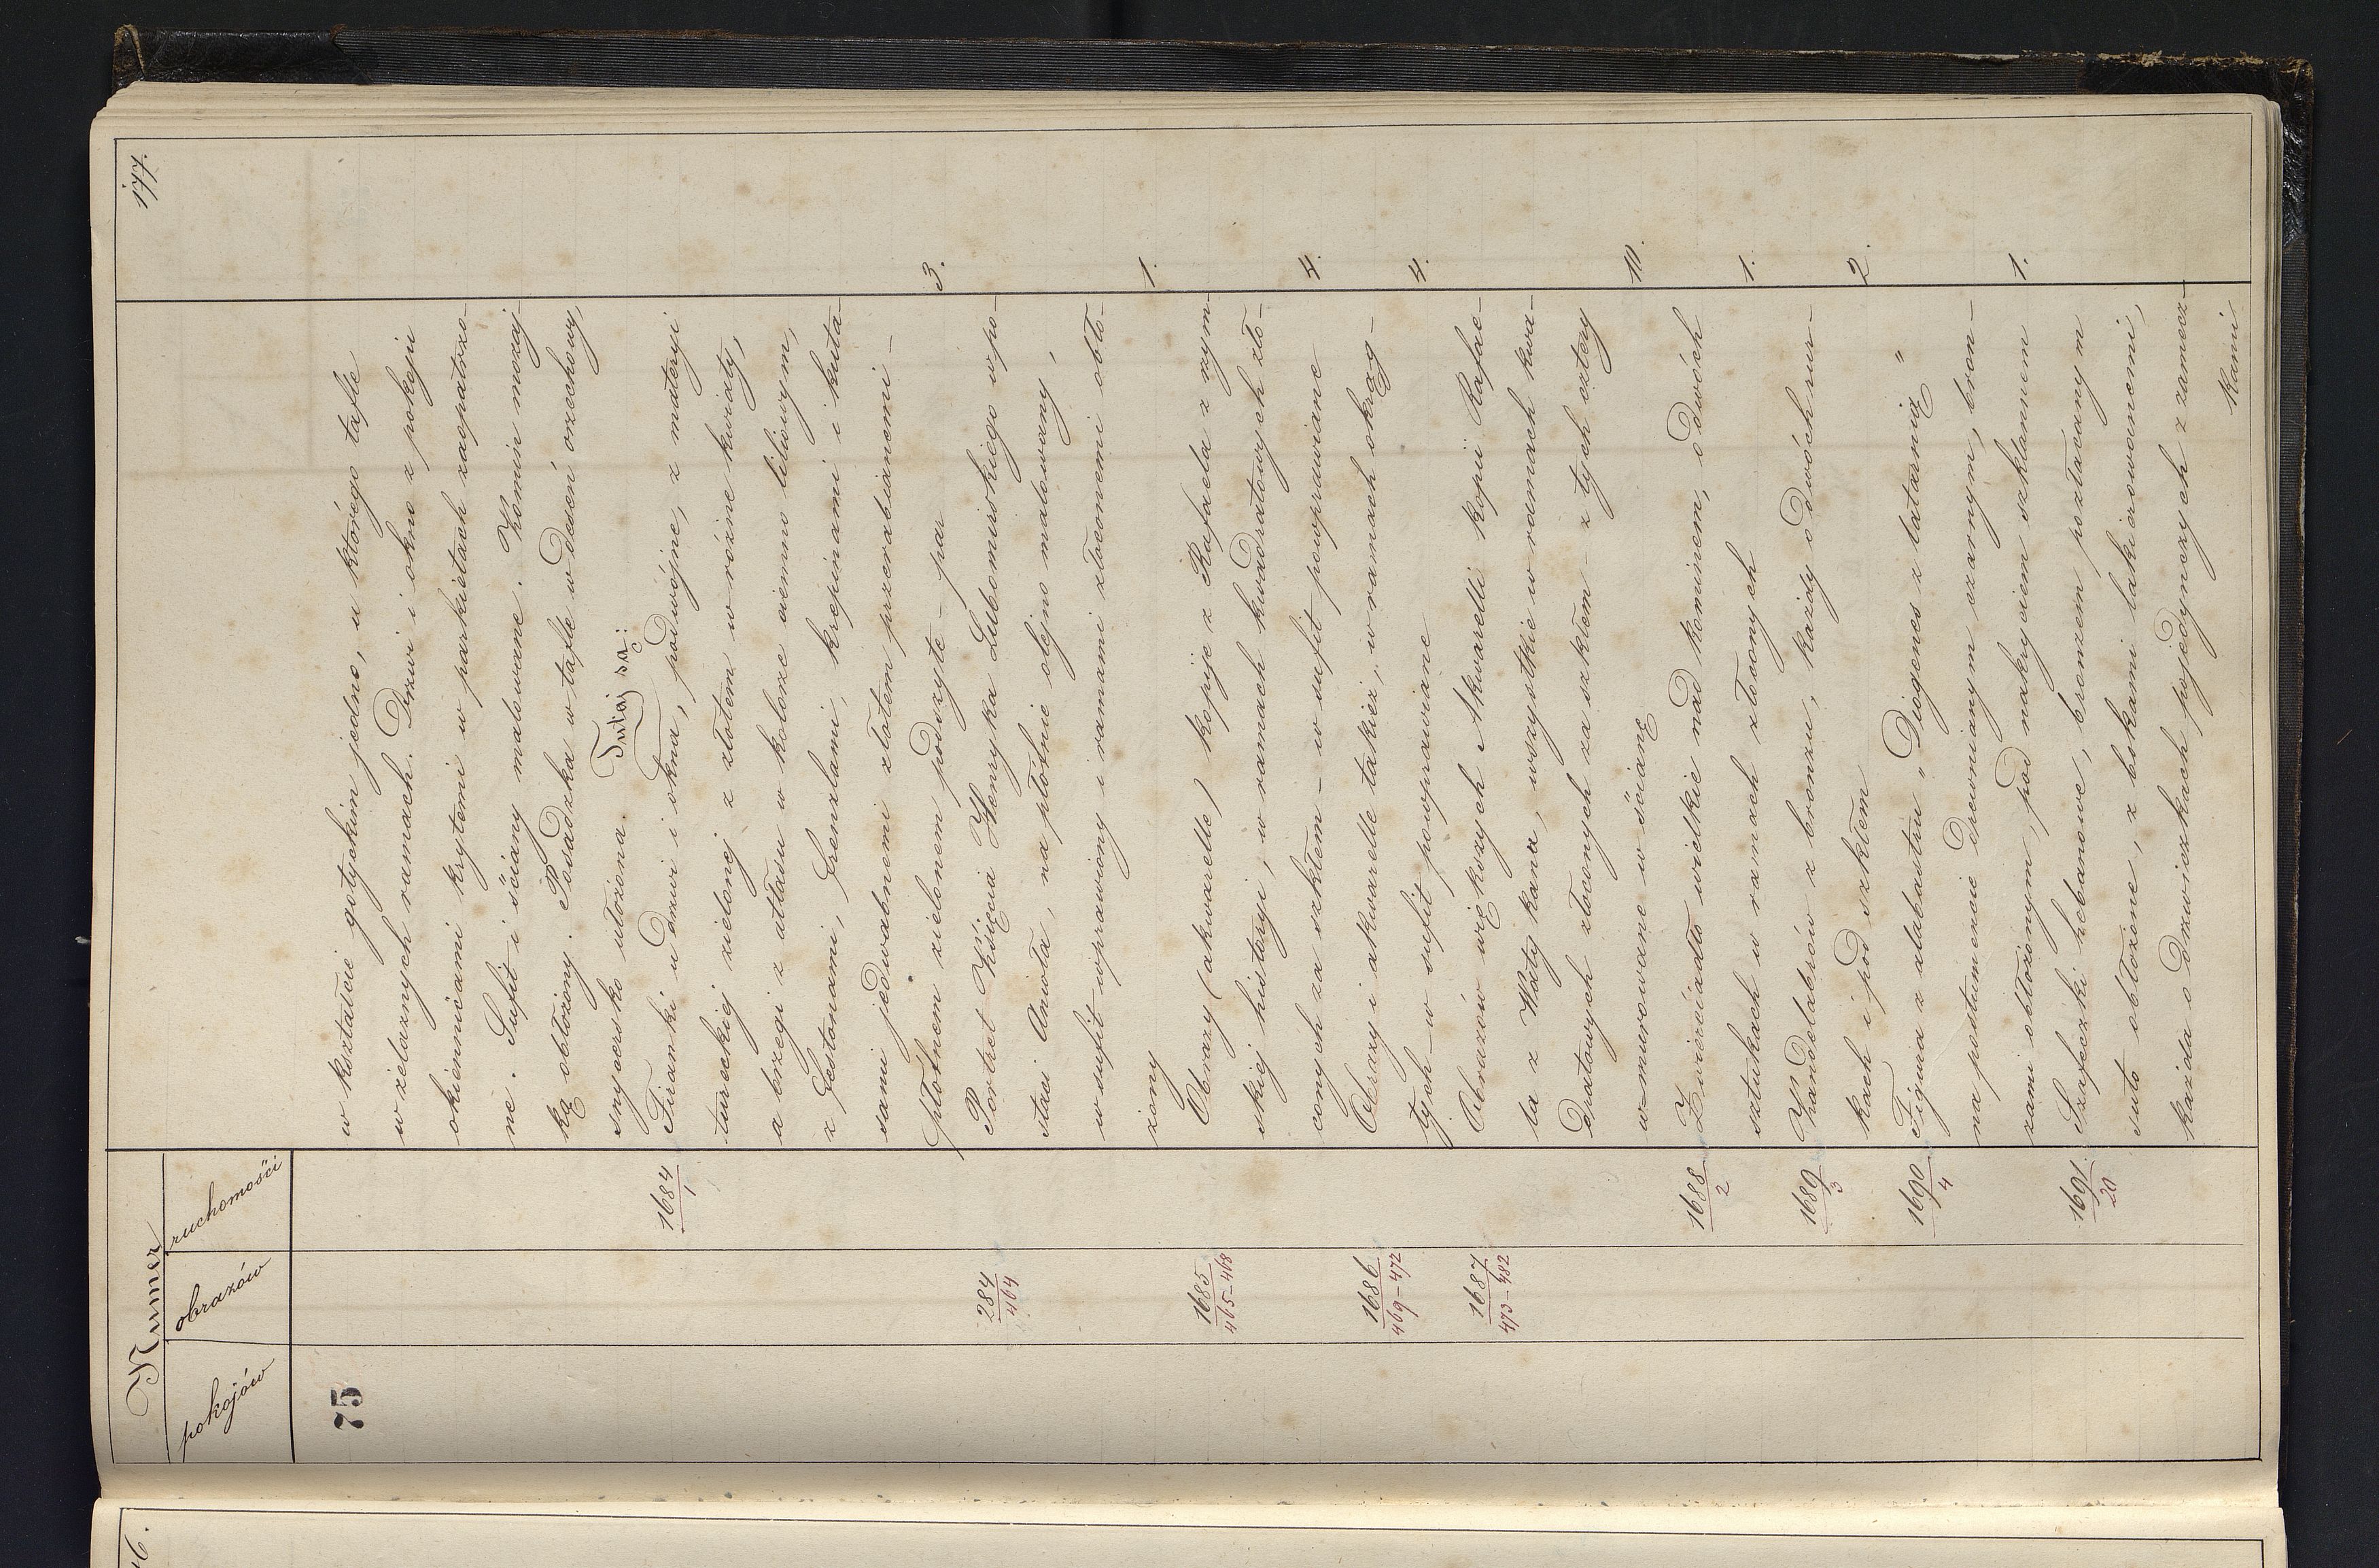 177.
Numer
pokojów obrazów ruchomości
75 w kształcie gotyckim jedno, u którego tafle
w żelaznych ramach. Drzwi i okno z pokoju
okiennicami krytemi w parkietach zaopatrzo-
ne. Sufit i ściany malowane. Komin mozaj-
ką obłożony. Posadzka w tafle w deseń orzechowy,
snycersko ułożona. Tutaj są:
1684/1 Firanki u drzwi i okna, podwójne, z materyi
tureckiej zielonej z złotem w różne kwiaty,
a brzegi z atłasu w kolorze ciemno liliowym,
z festonami, frenzlami, krepinami i kuta-
sami jedwabnemi złotem przerabianemi -
płótnem zielonem podszyte - par 3.
284/464 Portret Księcia Henryka Lubomirskiego w po-
staci Anioła, na płótnie olejno malowany,
w sufit wprawiony i ramami złoconemi obło-
żony 1.
1685/465-468 Obrazy (akwarelle) kopije z Rafaela z rzym-
skiej historyi, w ramach kwadratowych zło-
conych za szkłem - w sufit powprawiane 4.
1686/469-472 Obrazy i akwarelle takież, w ramach okrąg-
łych - w sufit powprawiane 4.
1687/473-482 Obrazów większych Akwarelli kopii Rafae-
la z Watykana, wszystkie w ramach kwa-
dratowych złoconych za szkłem - z tych cztery
w-murowane w ścianę 10.
1688/2 Zwierciadło wielkie nad kominem, o dwóch
sztukach w ramach złoconych 1.
1689/3 Kandelabrów z bronzu, każdy o dwóch rur-
kach i pod szkłem 2.
1690/4 Figura z alabastru „Diogenes z latarnią"
na postumencie drewnianym czarnym, bron-
zami obłożonym, pod nakryciem szklannem 1.
1691/20 Szafeczki hebanowe, bronzem pozłacanym
suto obłożone, z bokami lakierowanemi,
każda o drzwiczkach pojedynczych z zamecz-
kami